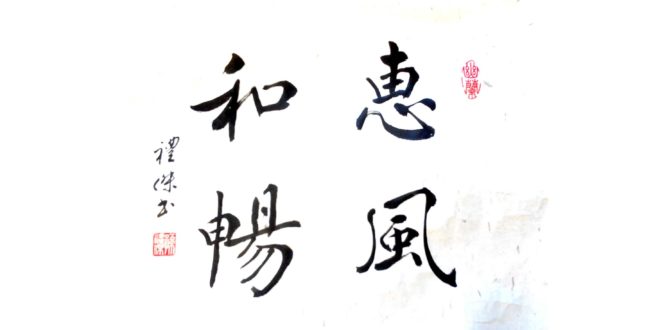 惠風
和暢
禮傑书